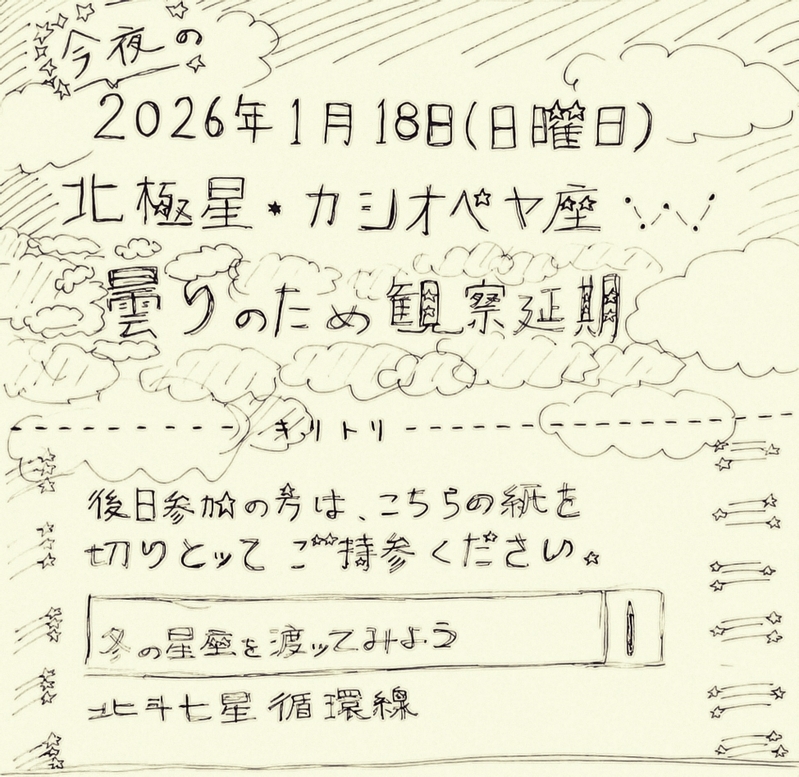 今夜の
2026年1月18日(日曜日)
北極星・カシオペヤ座
曇りのため観察延期
キリトリ
後日参加の方は、こちらの紙を
切りとってご持参ください。
冬の星座を渡ッてみよう
北斗七星循環線